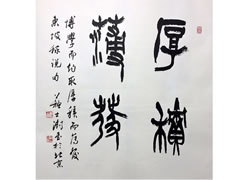 厚積
薄發
博學而約取厚積而薄發
東坡稼說句 蘇士澍書於北京